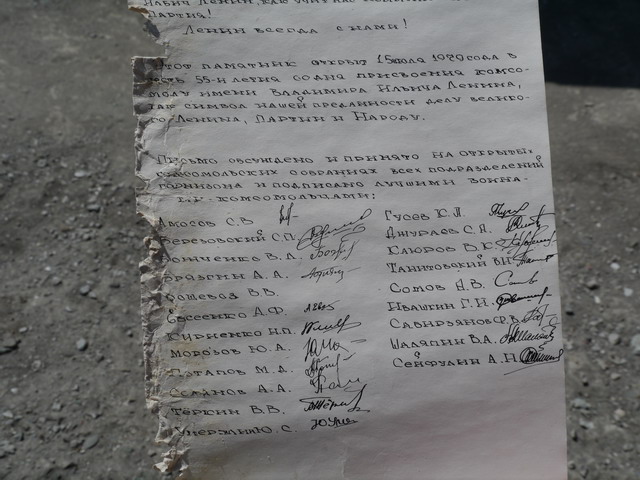 Ильич Ленин, как учит нас
Партия!
Ленин всегда с нами!
Этот памятник открыт 15 июля 1979 года в
честь 55-и летия со дня присвоения комсо-
молу имени Владимира Ильича Ленина,
как символ нашей преданности делу велико-
го Ленина, Партии и Народу.
Письмо обсуждено и принято на открытых
комсомольских собраниях всех подразделений
гарнизона и подписано лучшими воина-
комсомольцами:
Амосов С.В
Березовский С.П.
В.А.
Брагин А.А.
В.В.
Евсеенко А.Ф.
Кириенко Н.П.
Морозов Ю.А.
Потапов М.А.
А.А.
Тёркин В.В.
Ю.С.
Гусев К.П.
Джураев С.Я.
Клюров В.К.
Танитовский В.Н.
Сомов А.В.
Ивашкин Г.И.
Сабирзянов Ф.В.
Шаляпин В.А.
Сейфулин А.Н